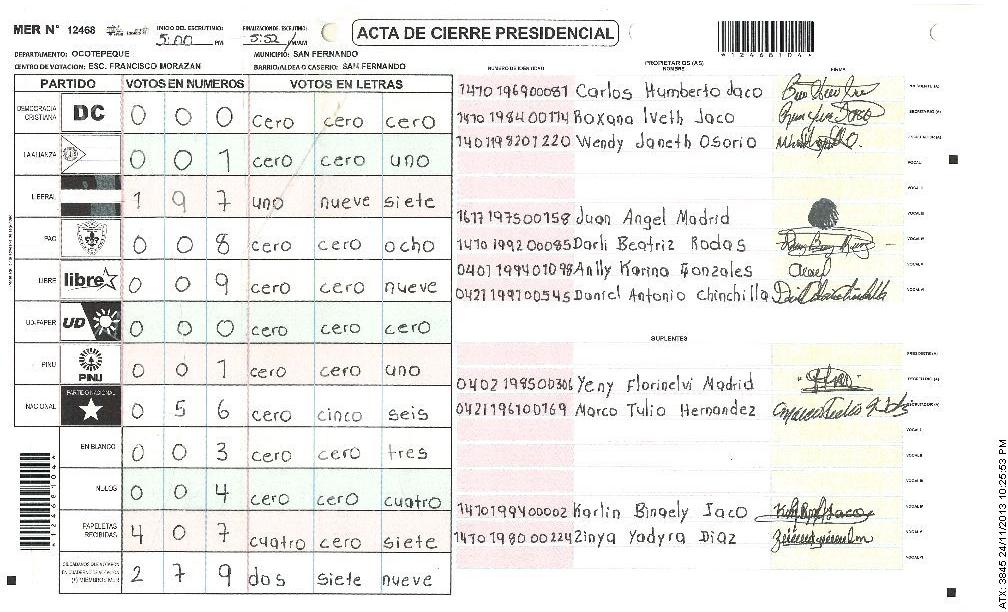 MER N° 12468 INICIO DEL ESCRUTINIO: 5:00 PM FINALIZACION DEL ESCRUTINIO: 5:52 ACTA DE CIERRE PRESIDENCIAL
DEPARTAMENTO: OCOTEPEQUE MUNICIPIO: SAN FERNANDO
CENTRO DE VOTACION: ESC. FRANCISCO MORAZAN BARRIO/ALDEA O CASERIO: SAN FERNANDO
PARTIDO VOTOS EN NUMEROS VOTOS EN LETRAS
DEMOCRACIA CRISTIANA DC 0 0 0 cero cero cero
LA ALIANZA 0 0 1 cero cero uno
LIBERAL 1 9 7 uno nueve siete
PAC 0 0 8 cero cero ocho
LIBRE libre 0 0 9 cero cero nueve
UD-FAPER UD 0 0 0 cero cero cero
PINU PINU 0 0 1 cero cero uno
NACIONAL PARTIDO NACIONAL 0 5 6 cero cinco seis
EN BLANCO 0 0 3 cero cero tres
NULOS 0 0 4 cero cero cuatro
PAPELETAS RECIBIDAS 4 0 7 cuatro cero siete
CIUDADANOS QUE VOTARON EN CUADERNO DE VOTACION (+) MIEMBROS MER 2 7 9 dos siete nueve
*12468104*
PROPIETARIOS (AS)
NUMERO DE IDENTIDAD NOMBRE FIRMA
1410196900081 Carlos Humberto Jaco
1410198400174 Roxana Iveth Jaco
1401198201220 Wendy Janeth Osorio
1617197500158 Juan Angel Madrid
1410199200085 Darli Beatriz Rodas
0401199401098 Anlly Karina Gonzales
0421199100545 Daniel Antonio Chinchilla
SUPLENTES
0402198500306 Yeny Florinelvi Madrid
0421196100169 Marco Tulio Hernandez
1410199400002 Karlin Bingely Jaco
1410198000224 Zinya Yadyra Diaz
*12468104*
ATX: 3845 24/11/2013 10:25:53 PM